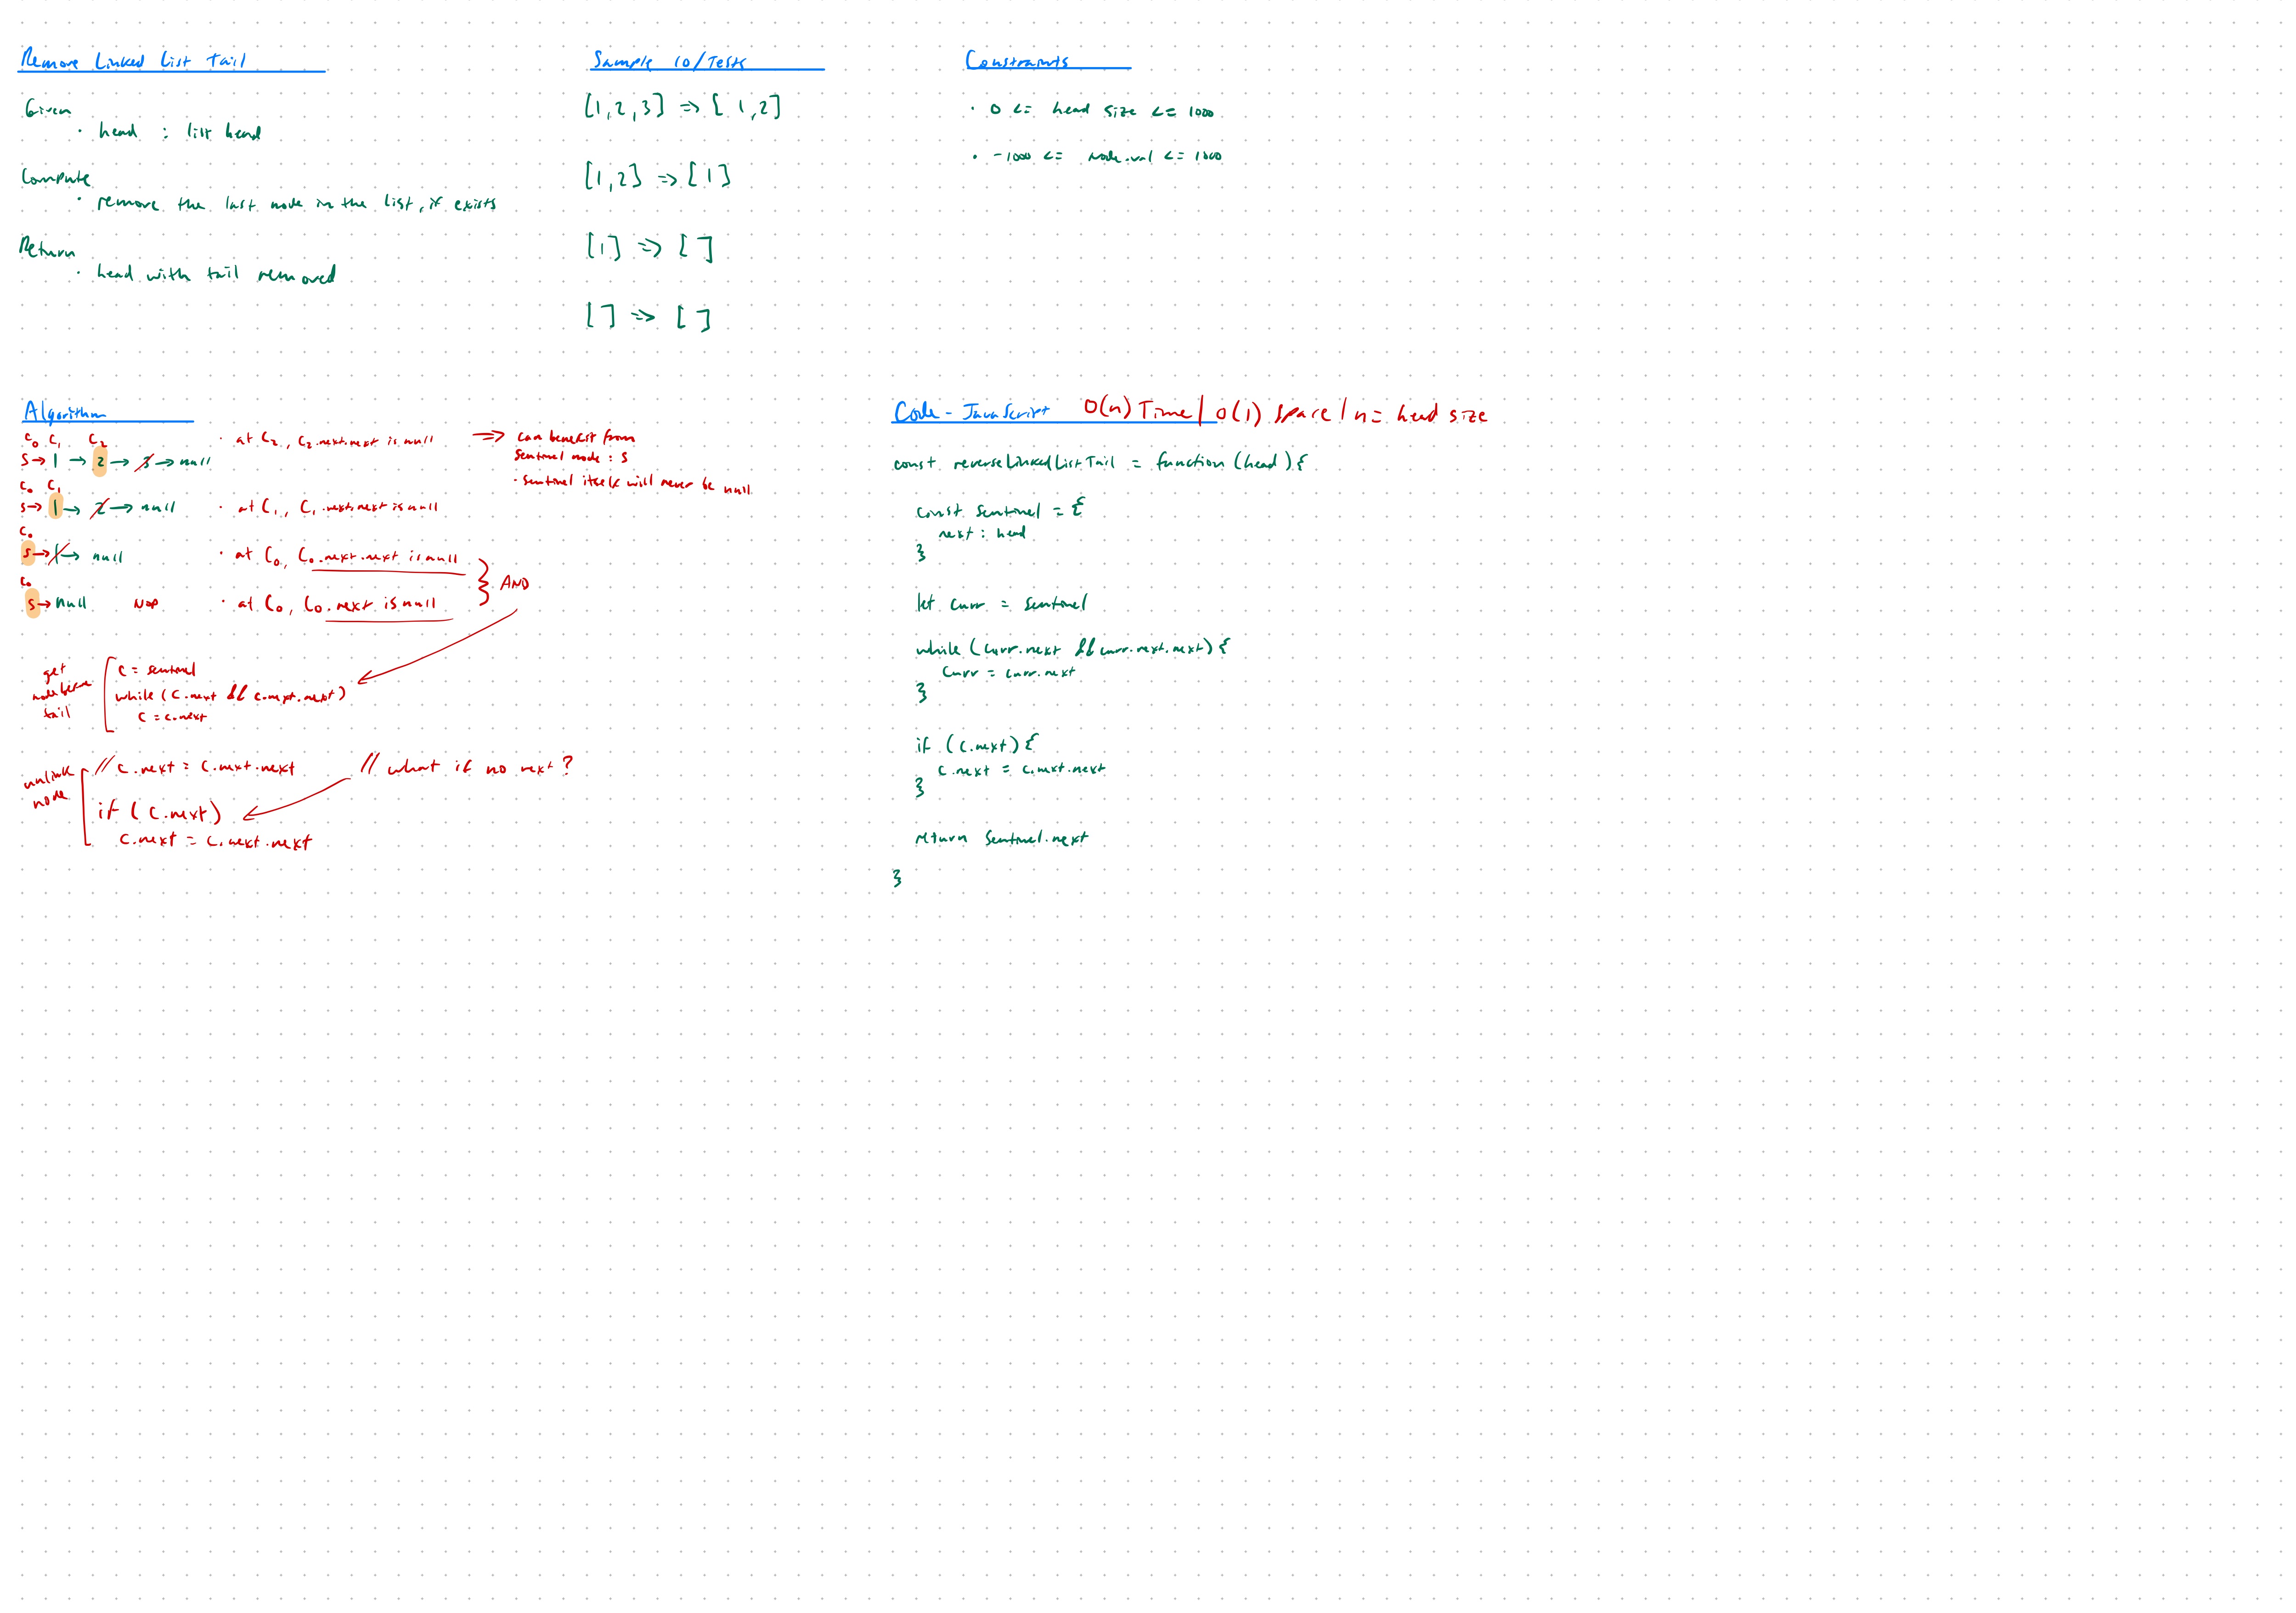 Remove Linked List Tail
Given
· head : list head
Compute
· remove the last node in the list, if exists
Return
· head with tail removed
Sample IO/Tests
[1,2,3] => [1,2]
[1,2] => [1]
[1] => []
[] => []
Constraints
· 0 <= head size <= 1000
· -1000 <= node.val <= 1000
Algorithm
C0 C1 C2
S → 1 → 2 → 3 → null
· at C2, C2.next.next is null
=> can benefit from
sentinel node : S
· sentinel itself will never be null
C0 C1
S → 1 → 2 → null
· at C1, C1.next.next is null
C0
S → 1 → null
· at C0, C0.next.next is null
C0
S → null NOP
· at C0, C0.next is null
} AND
get
node before
tail
C = sentinel
while (C.next && C.next.next)
C = C.next
unlink
node
// C.next = C.next.next
// what if no next?
if (C.next)
C.next = C.next.next
Code - JavaScript O(n) Time | O(1) Space | n = head size
const reverseLinkedListTail = function (head) {
const sentinel = {
next : head
}
let curr = sentinel
while (curr.next && curr.next.next) {
curr = curr.next
}
if (c.next) {
c.next = c.next.next
}
return sentinel.next
}